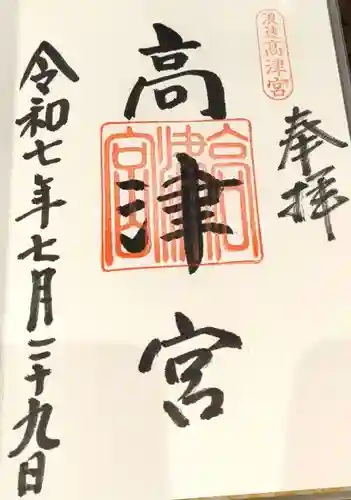 浪速高津宮
奉拝
高津宮
高津宮
令和七年七月二十九日